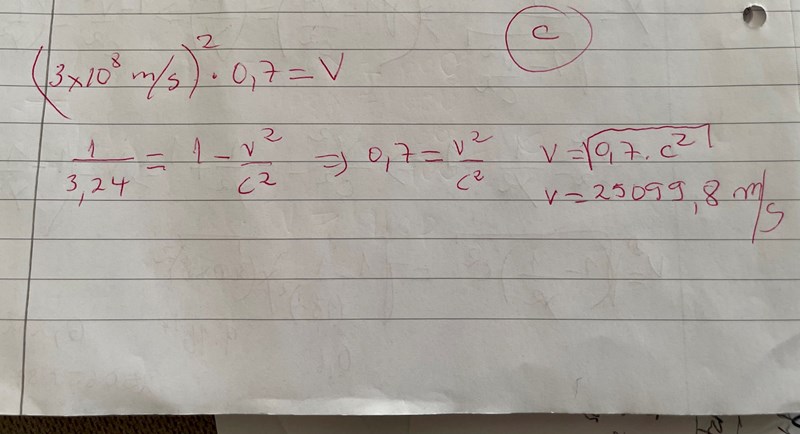 c
(3×10⁸ m/s)² · 0,7 = V
1/3,24 = 1 - v²/c² ⇒ 0,7 = v²/c² v = √(0,7 · c²)
v = 25099,8 m/s